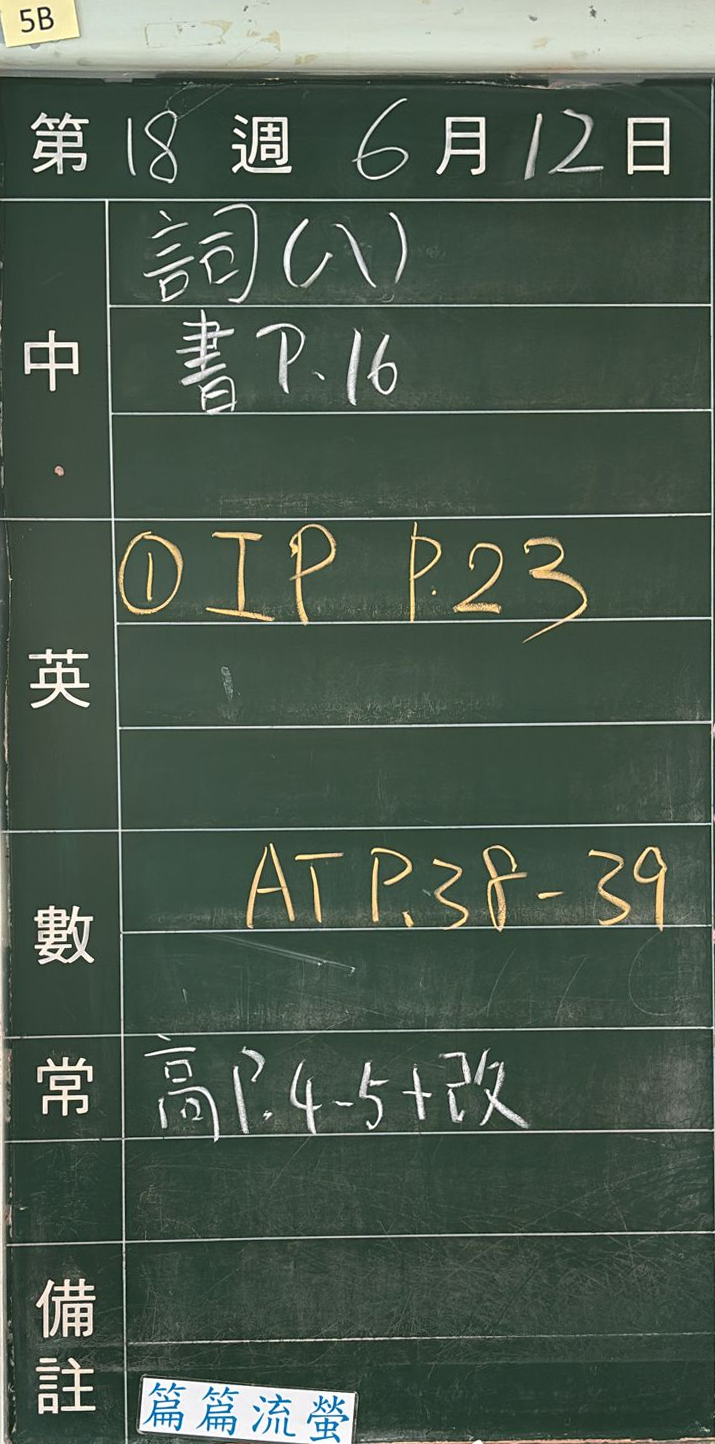 5B
第 18 週 6 月 12 日
中
詞(八)
書 P.16
英
① IP P.23
數
AT P.38-39
常
高 P.4-5+改
備註
篇篇流螢